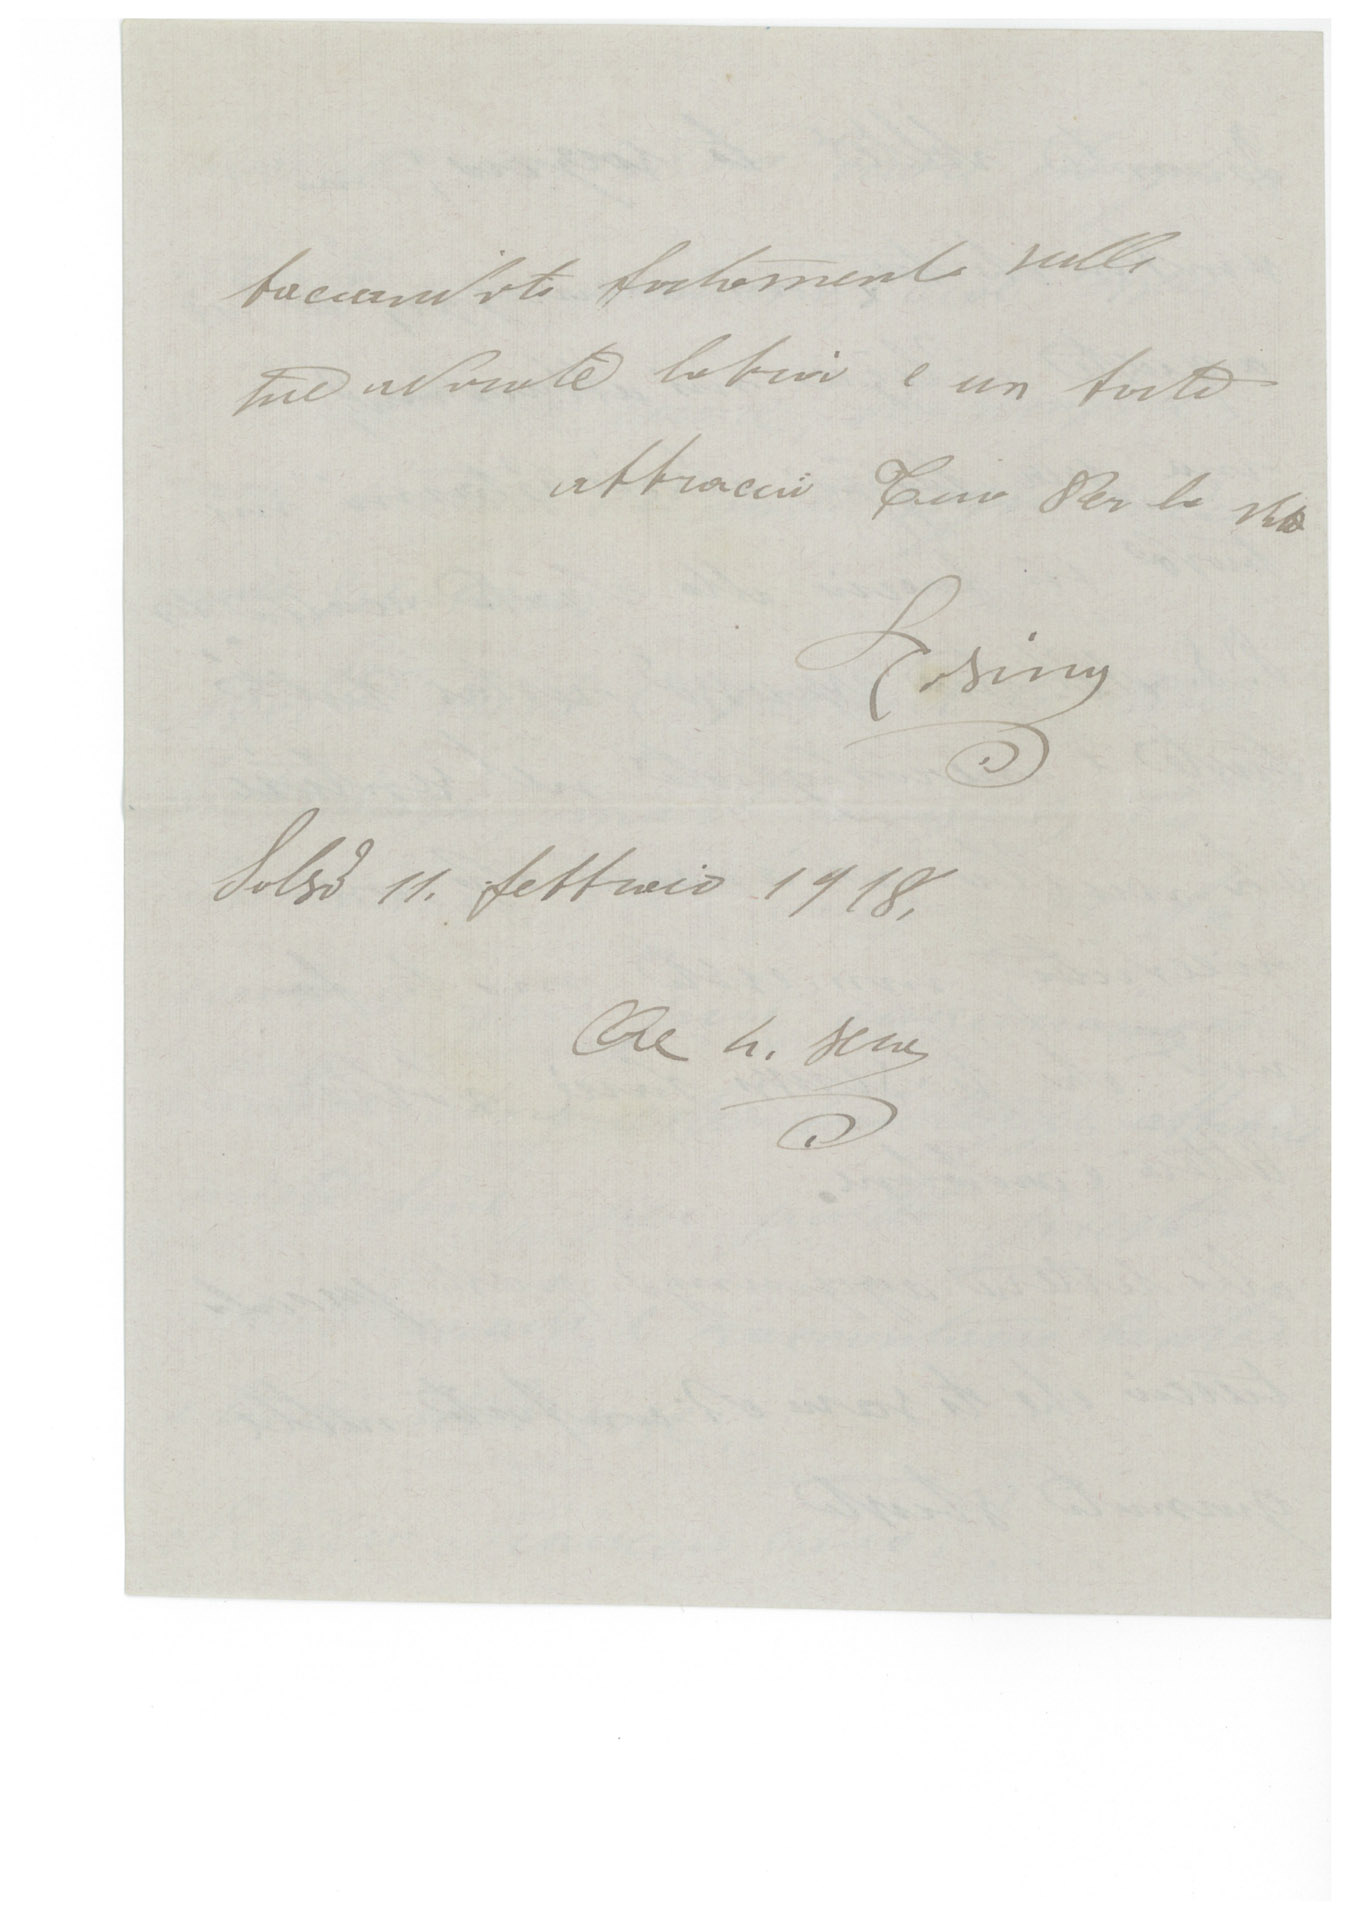 baciandoti fortemente sulle
tue adorate labria e un forte
abbraccio Tua Per la vita
Rosina
Solsò 11. febbraio 1918.
Ore 4. sera